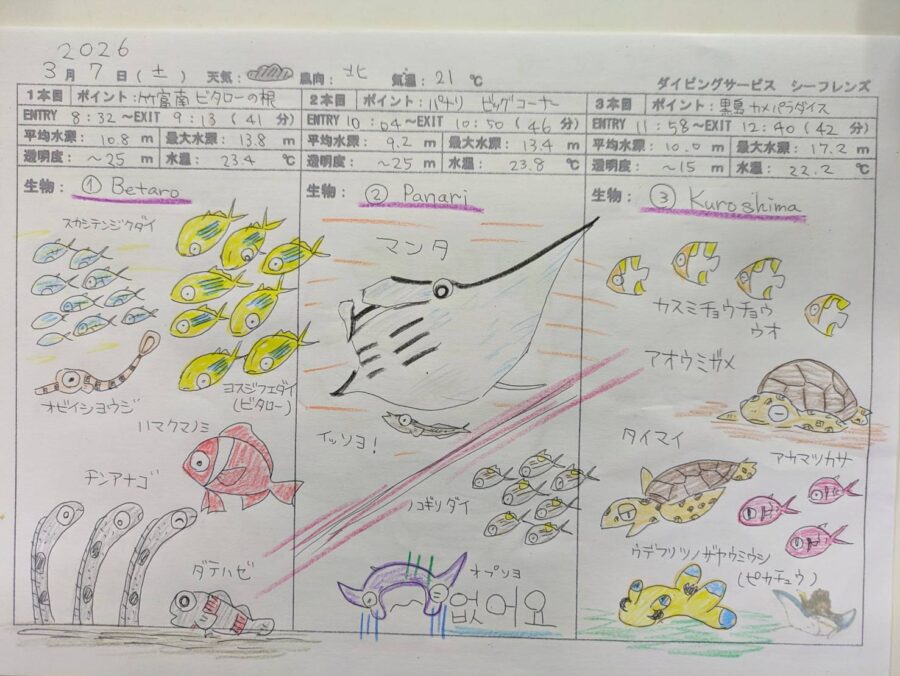 2026
3月7日(土) 天気: 風向:北 気温:21℃
ダイビングサービス シーフレンズ
1本目 ポイント:竹富南ビタローの根
ENTRY 8:32~EXIT 9:13(41分)
平均水深:10.8m 最大水深:13.8m
透明度:~25m 水温:23.4℃
生物: ① Betaro
スカシテンジクダイ
ヨスジフエダイ
(ビタロー)
オビイショウジ
ハマクマノミ
チンアナゴ
ダテハゼ
2本目 ポイント:パナリ ビッグコーナー
ENTRY 10:04~EXIT 10:50(46分)
平均水深:9.2m 最大水深:13.4m
透明度:~25m 水温:23.8℃
生物: ② Panari
マンタ
イッソヨ!
ノコギリダイ
オプソヨ
없어요
3本目 ポイント:黒島カメパラダイス
ENTRY 11:58~EXIT 12:40(42分)
平均水深:10.0m 最大水深:17.2m
透明度:~15m 水温:22.2℃
生物: ③ Kuroshima
カスミチョウチョウ
ウオ
アオウミガメ
タイマイ
アカマツカサ
ウデフリツノザヤウミウシ
(ピカチュウ)